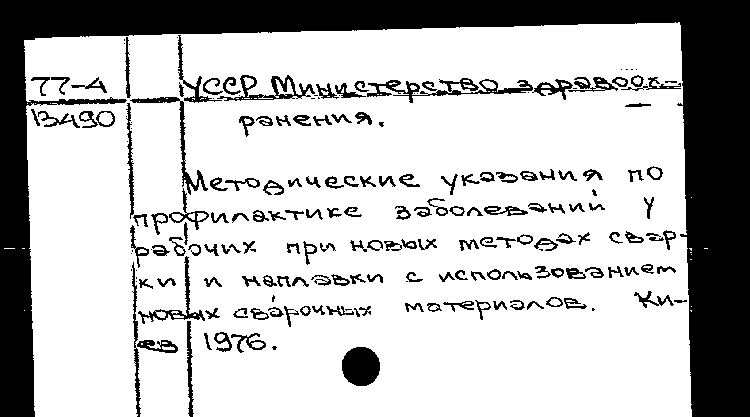 77-А УССР Министерство здравоох-
13490 ранения.
Методические указания по
профилактике заболеваний у
рабочих при новых методах свар-
ки и наплавки с использованием
новых сварочных материалов. Ки-
ев 1976.